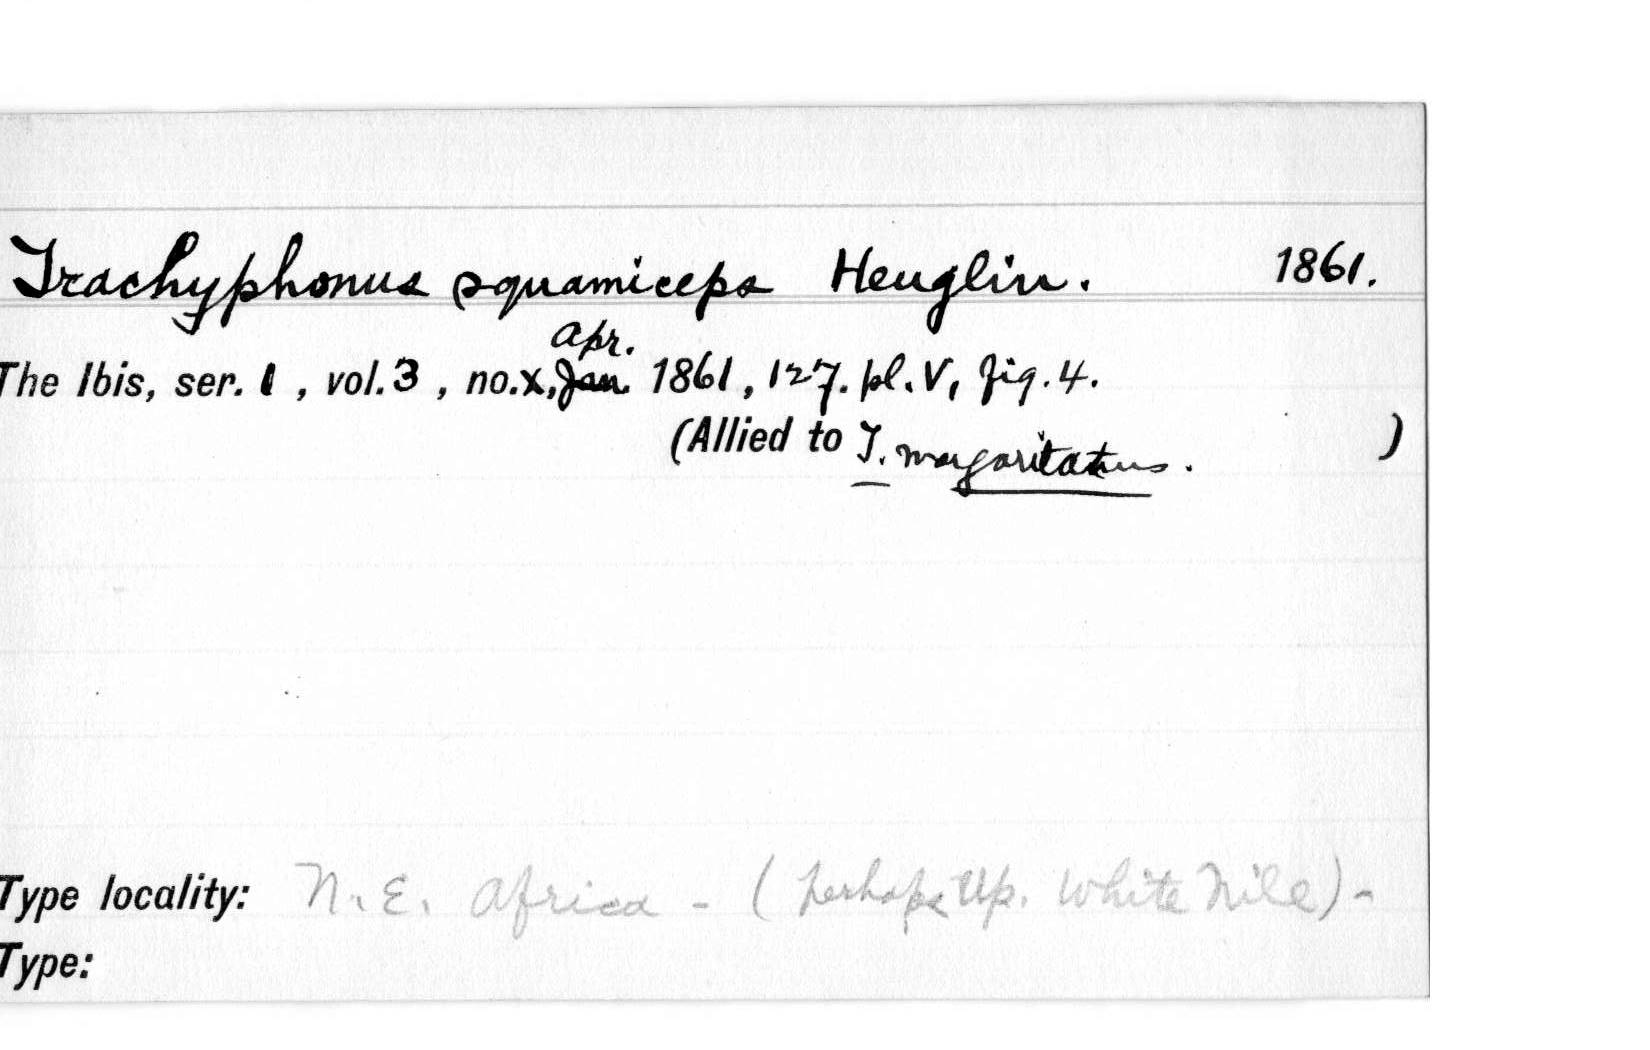 Trachyphonus squamiceps Heuglin. 1861.
Apr.
The Ibis, ser. 1, vol. 3, no. X, Jan. 1861, 127. pl. V, fig. 4.
(Allied to T. margaritatus. )
Type locality: N. E. Africa - (perhaps Up. White Nile) -
Type: